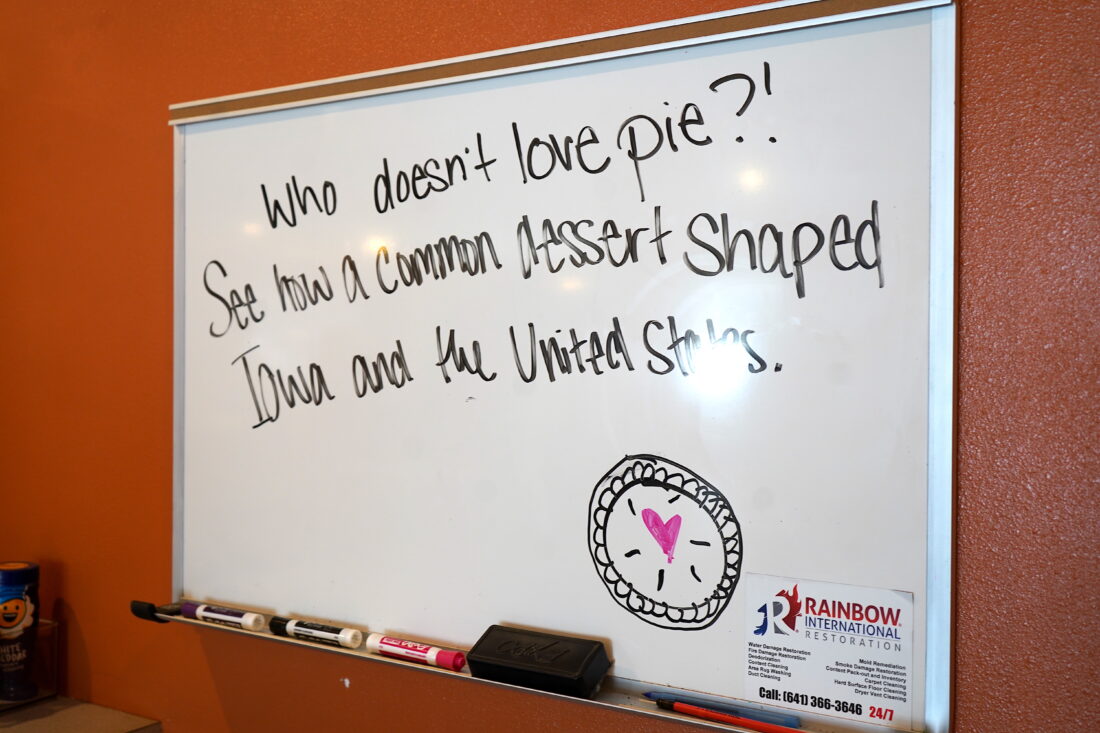 Who doesn't love pie?!
See how a common dessert shaped
Iowa and the United States.
RAINBOW
INTERNATIONAL
RESTORATION
Water Damage Restoration
Fire Damage Restoration
Deodorization
Content Cleaning
Area Rug Washing
Duct Cleaning
Mold Remediation
Smoke Damage Restoration
Content Pack-out and Inventory
Carpet Cleaning
Hard Surface Floor Cleaning
Dryer Vent Cleaning
Call: (641) 366-3646 24/7